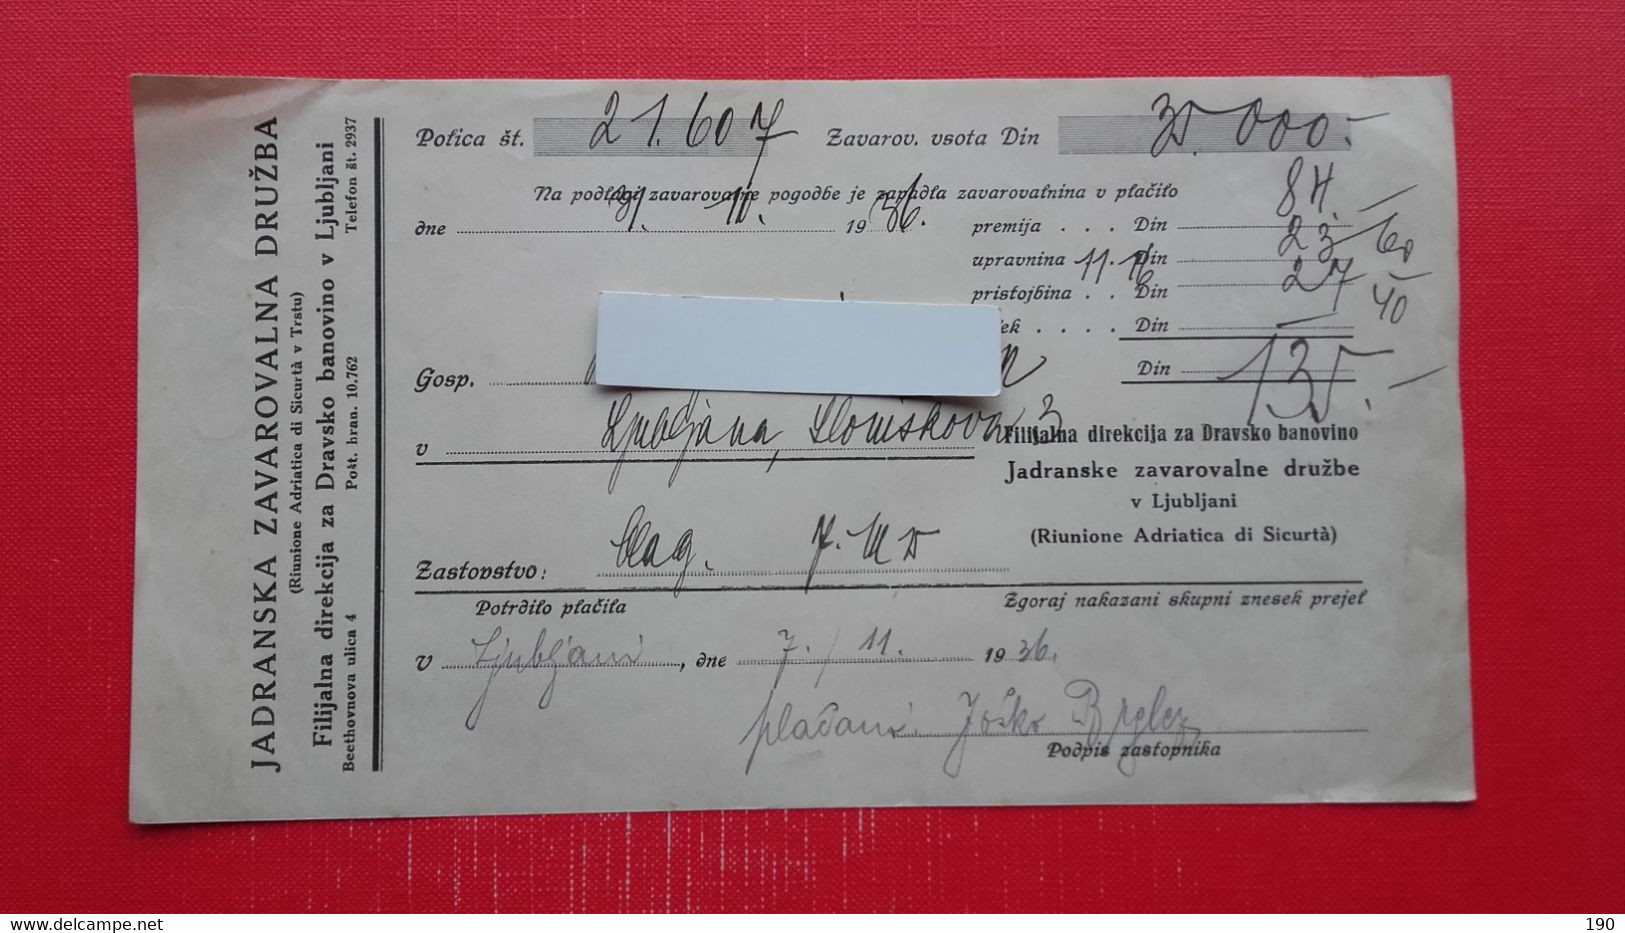 JADRANSKA ZAVAROVALNA DRUŽBA
(Riunione Adriatica di Sicurtà v Trstu)
Filijalna direkcija za Dravsko banovino v Ljubljani
Beethovnova ulica 4 Pošt. hran. 10.762 Telefon št. 2937
Polica št. 21.607 Zavarov. vsota Din 30.000.-
Na podlagi zavarovalne pogodbe je zapadla zavarovalnina v plačilo
dne 1. 11. 1936.
premija . . . Din 84.-
upravnina 11. Din 23 60
pristojbina . . Din 27 40
. . . . Din -
Din 135.-
Gosp.
v Ljubljana, Slomškova 3
Filijalna direkcija za Dravsko banovino
Jadranske zavarovalne družbe
v Ljubljani
(Riunione Adriatica di Sicurtà)
Zastopstvo:
Potrdilo plačila Zgoraj nakazani skupni znesek prejel
v Ljubljani, dne 7./11. 1936.
plačani. Joško Brglez
Podpis zastopnika
www.delcampe.net 190